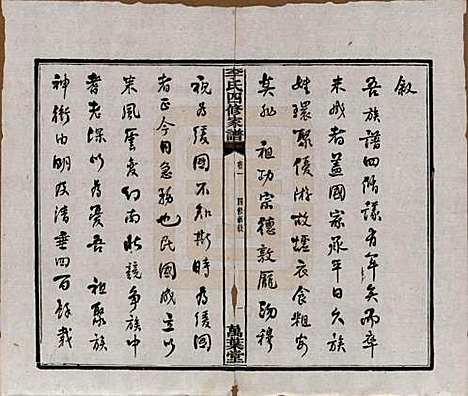 敘
吾族譜四脩議有年矣而卒
未成者蓋國家承平日久族
姓環聚優游故煙衣食粗安
莫非 祖功宗德敦龐沕穆
李氏四修家譜
卷一
四修新敘
一
萬葉堂
視為緩圖不知斯時為緩圖
者正今日急務也民國成立以
來風雲變幻南北競爭族中
耆老深以為憂吾 祖聚族
神衝由明及清垂四百餘載